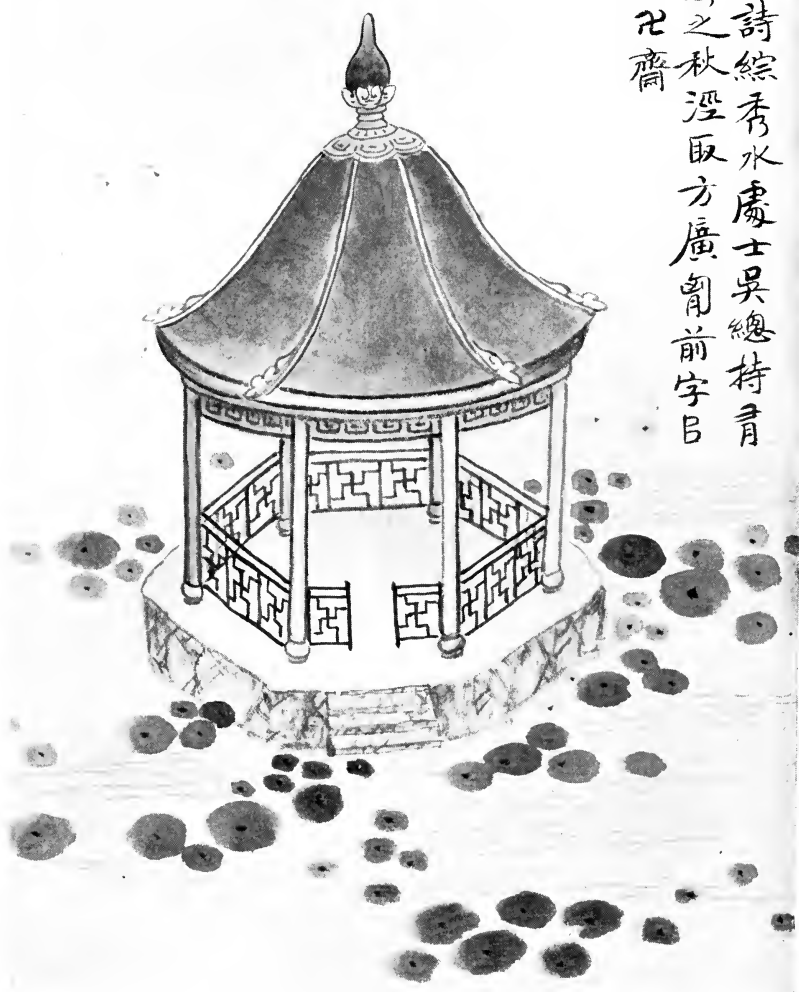 詩綜秀水處士吳總持有
之秋涇取方廣胷前字曰
卍齋